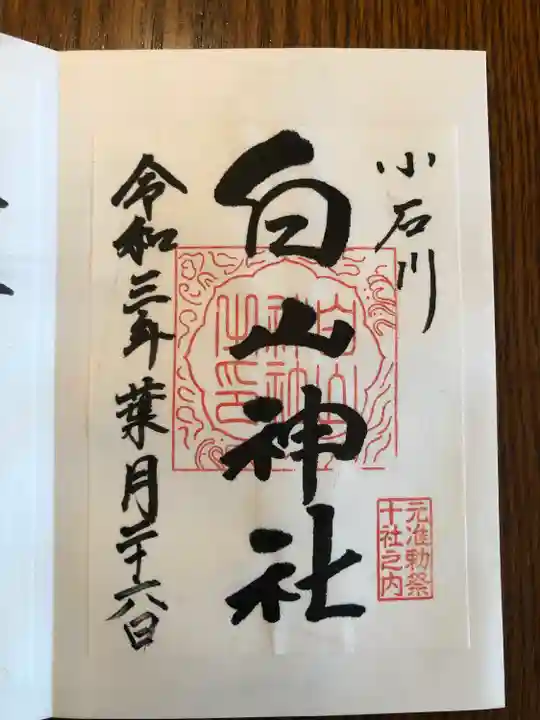 小石川
白山神社
白山
神社
之印
元准勅祭
十社之内
令和三年葉月二十六日